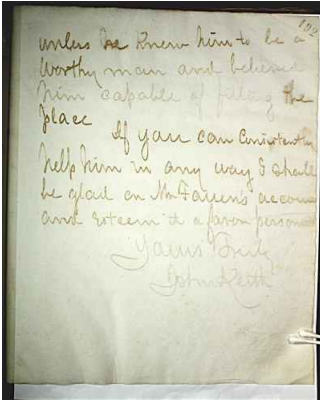 102
unless he knew him to be a
worthy man and believed
him capable of filling the
place
If you can consistently
help him in any way I should
be glad on Mr account
and esteem it a favor personal
Yours Truly
John Keith